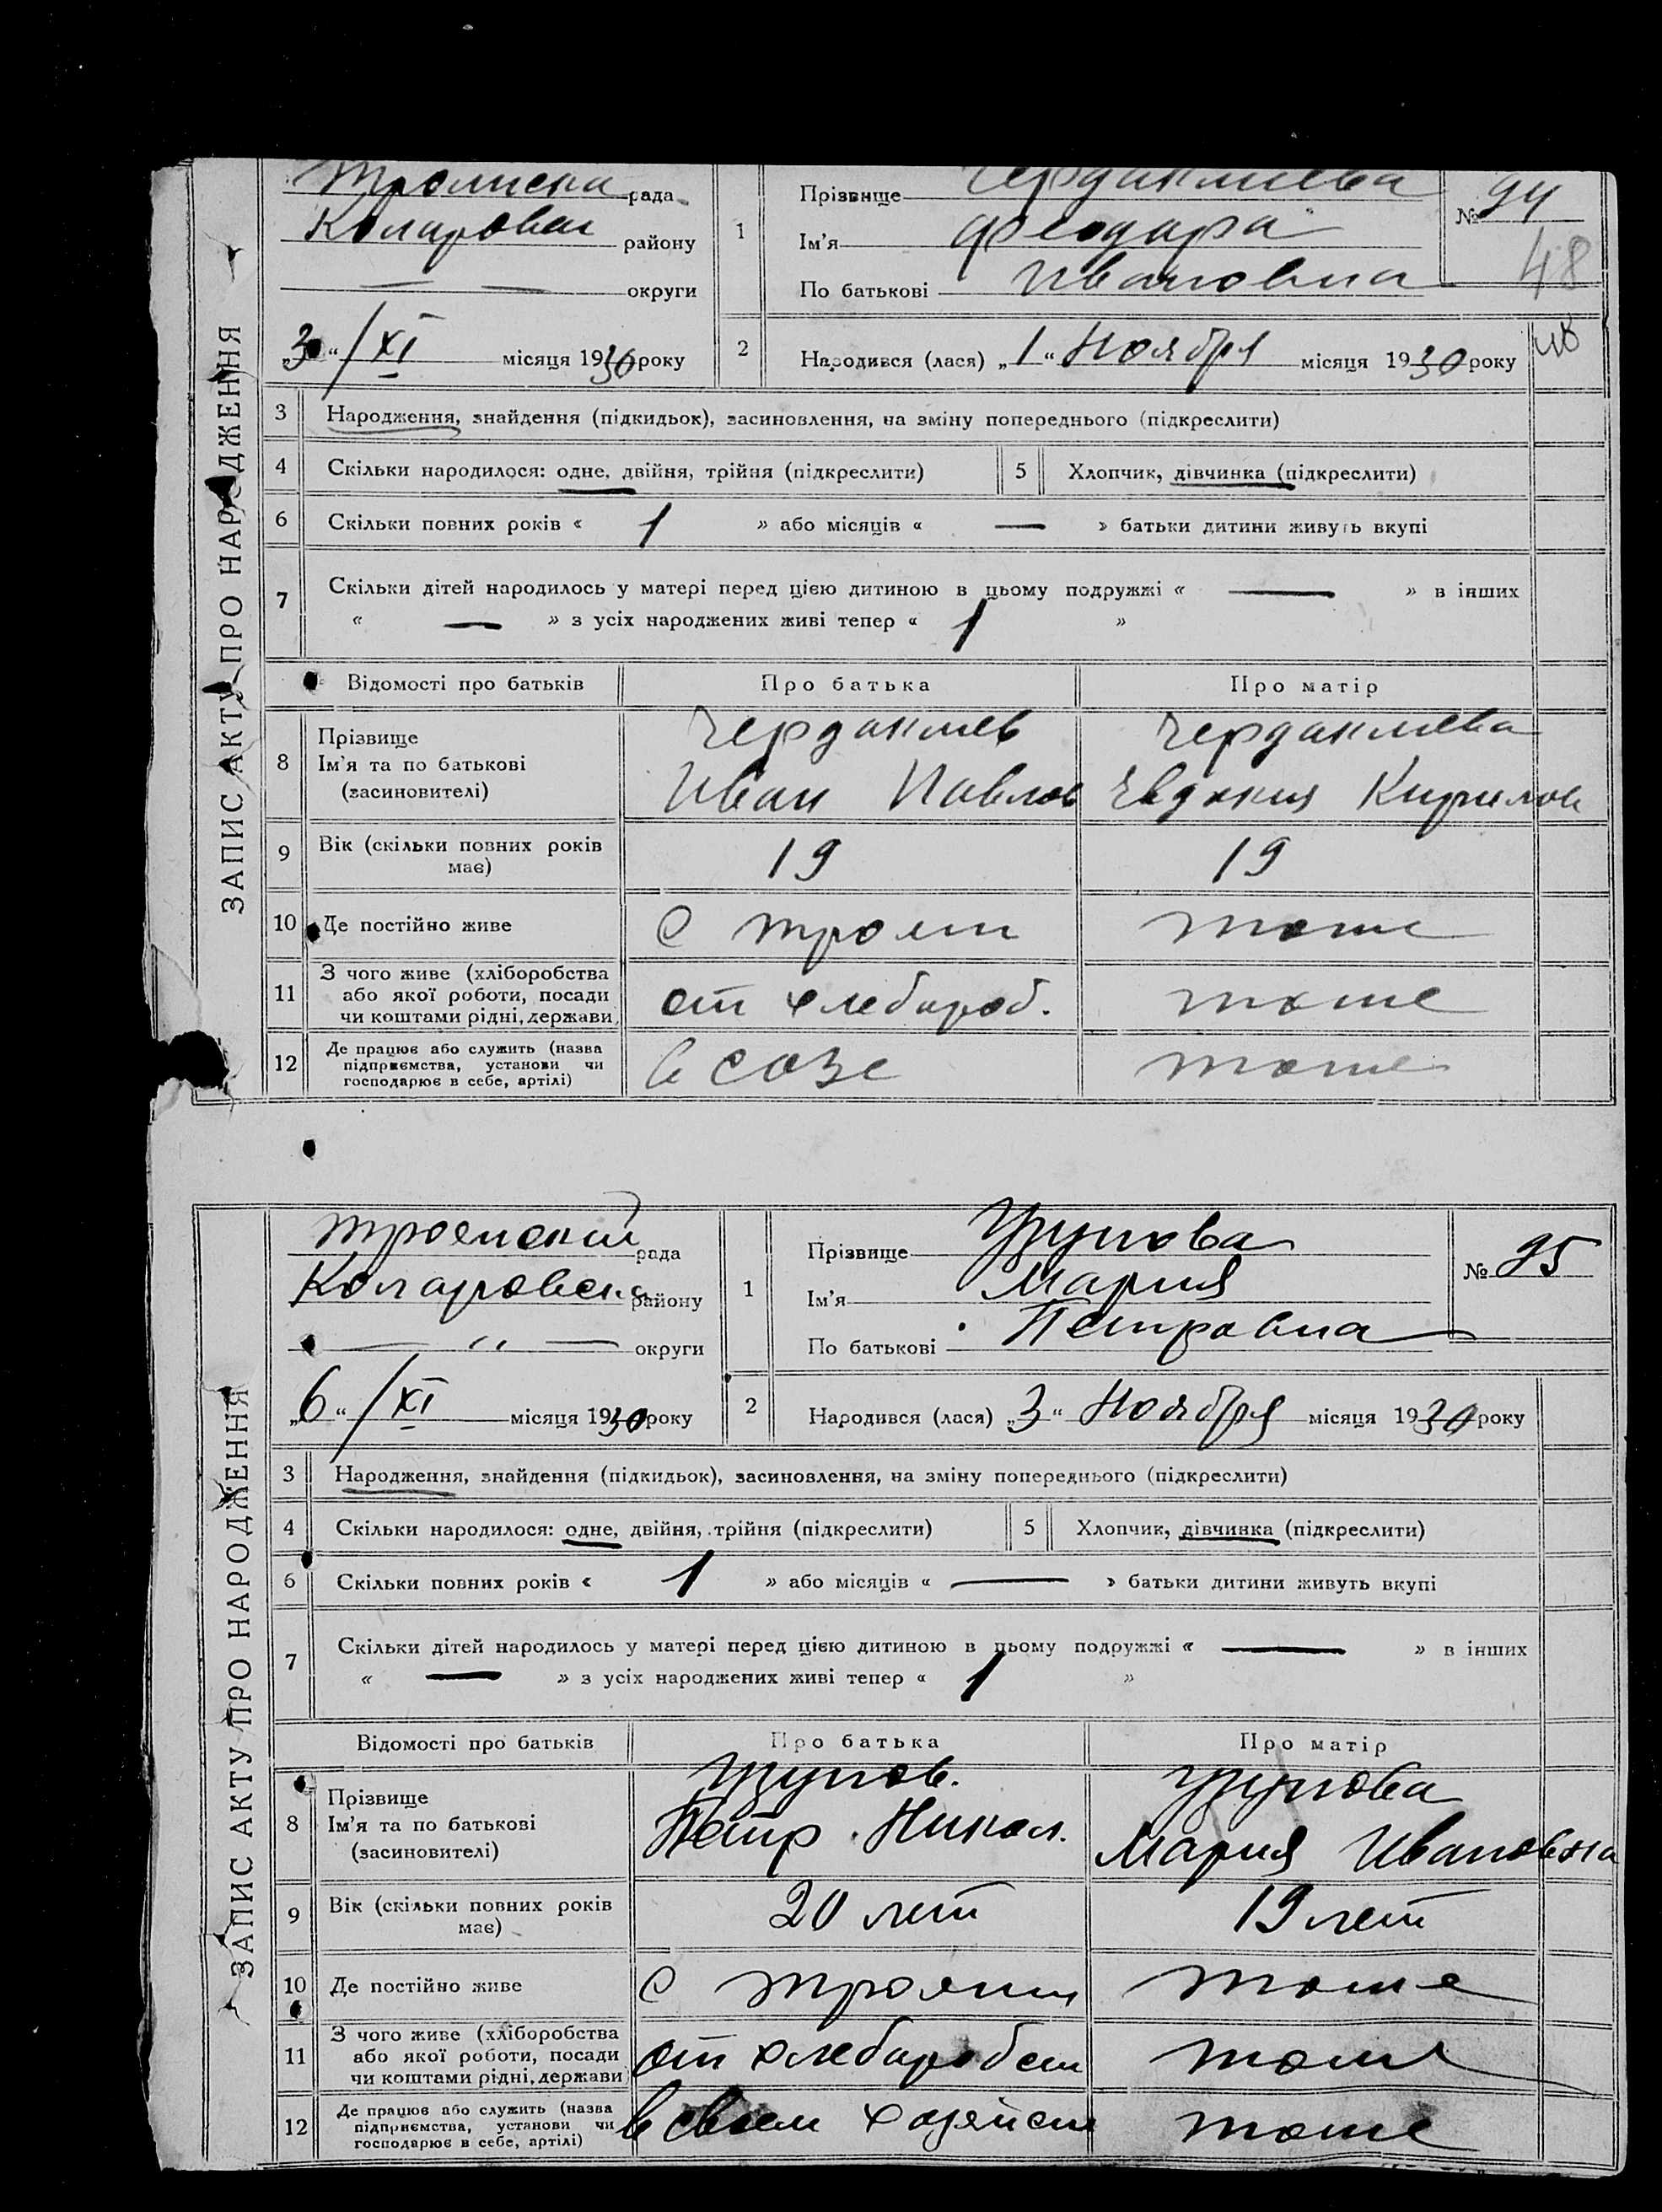 ЗАПИС АКТУ ПРО НАРОДЖЕННЯ
рада
Коларовск району
— — округи
„3“ /XI місяця 1930 року
1
Прізвище Чердаклиева
Ім'я Феодора
По батькові Ивановна
№ 94
48
2
Народився (лася) „1“ Ноября місяця 1930 року
3 Народження, знайдення (підкидьок), засиновлення, на зміну попереднього (підкреслити)
4 Скільки народилося: одне, двійня, трійня (підкреслити) 5 Хлопчик, дівчинка (підкреслити)
6 Скільки повних років « 1 » або місяців « — » батьки дитини живуть вкупі
7 Скільки дітей народилось у матері перед цією дитиною в цьому подружжі « — » в інших
« — » з усіх народжених живі тепер « 1 »
Відомості про батьків Про батька Про матір
8 Прізвище
Ім'я та по батькові
(засиновителі)
Чердаклиев
Иван Павлов
Чердаклиева
Евдокия Кирилов
9 Вік (скільки повних років
має)
19 19
10 Де постійно живе С Трояни тоже
11 З чого живе (хліборобства
або якої роботи, посади
чи коштами рідні, держави
от хлебороб. тоже
12 Де працює або служить (назва
підприємства, установи чи
господарює в себе, артілі)
в созе тоже
ЗАПИС АКТУ ПРО НАРОДЖЕННЯ
Троянский рада
Коларовска району
— " — округи
„6“ /XI місяця 1930 року
1
Прізвище Узунова
Ім'я Мария
По батькові Петровна
№ 95
2
Народився (лася) „3“ Ноября місяця 1930 року
3 Народження, знайдення (підкидьок), засиновлення, на зміну попереднього (підкреслити)
4 Скільки народилося: одне, двійня, трійня (підкреслити) 5 Хлопчик, дівчинка (підкреслити)
6 Скільки повних років « 1 » або місяців « — » батьки дитини живуть вкупі
7 Скільки дітей народилось у матері перед цією дитиною в цьому подружжі « — » в інших
« — » з усіх народжених живі тепер « 1 »
Відомості про батьків Про батька Про матір
8 Прізвище
Ім'я та по батькові
(засиновителі)
Узунов.
Петр Никол.
Узунова
Мария Ивановна
9 Вік (скільки повних років
має)
20 лет 19 лет
10 Де постійно живе С Трояны тоже
11 З чого живе (хліборобства
або якої роботи, посади
чи коштами рідні, держави
от хлеборобст тоже
12 Де працює або служить (назва
підприємства, установи чи
господарює в себе, артілі)
в своем хозяйств тоже